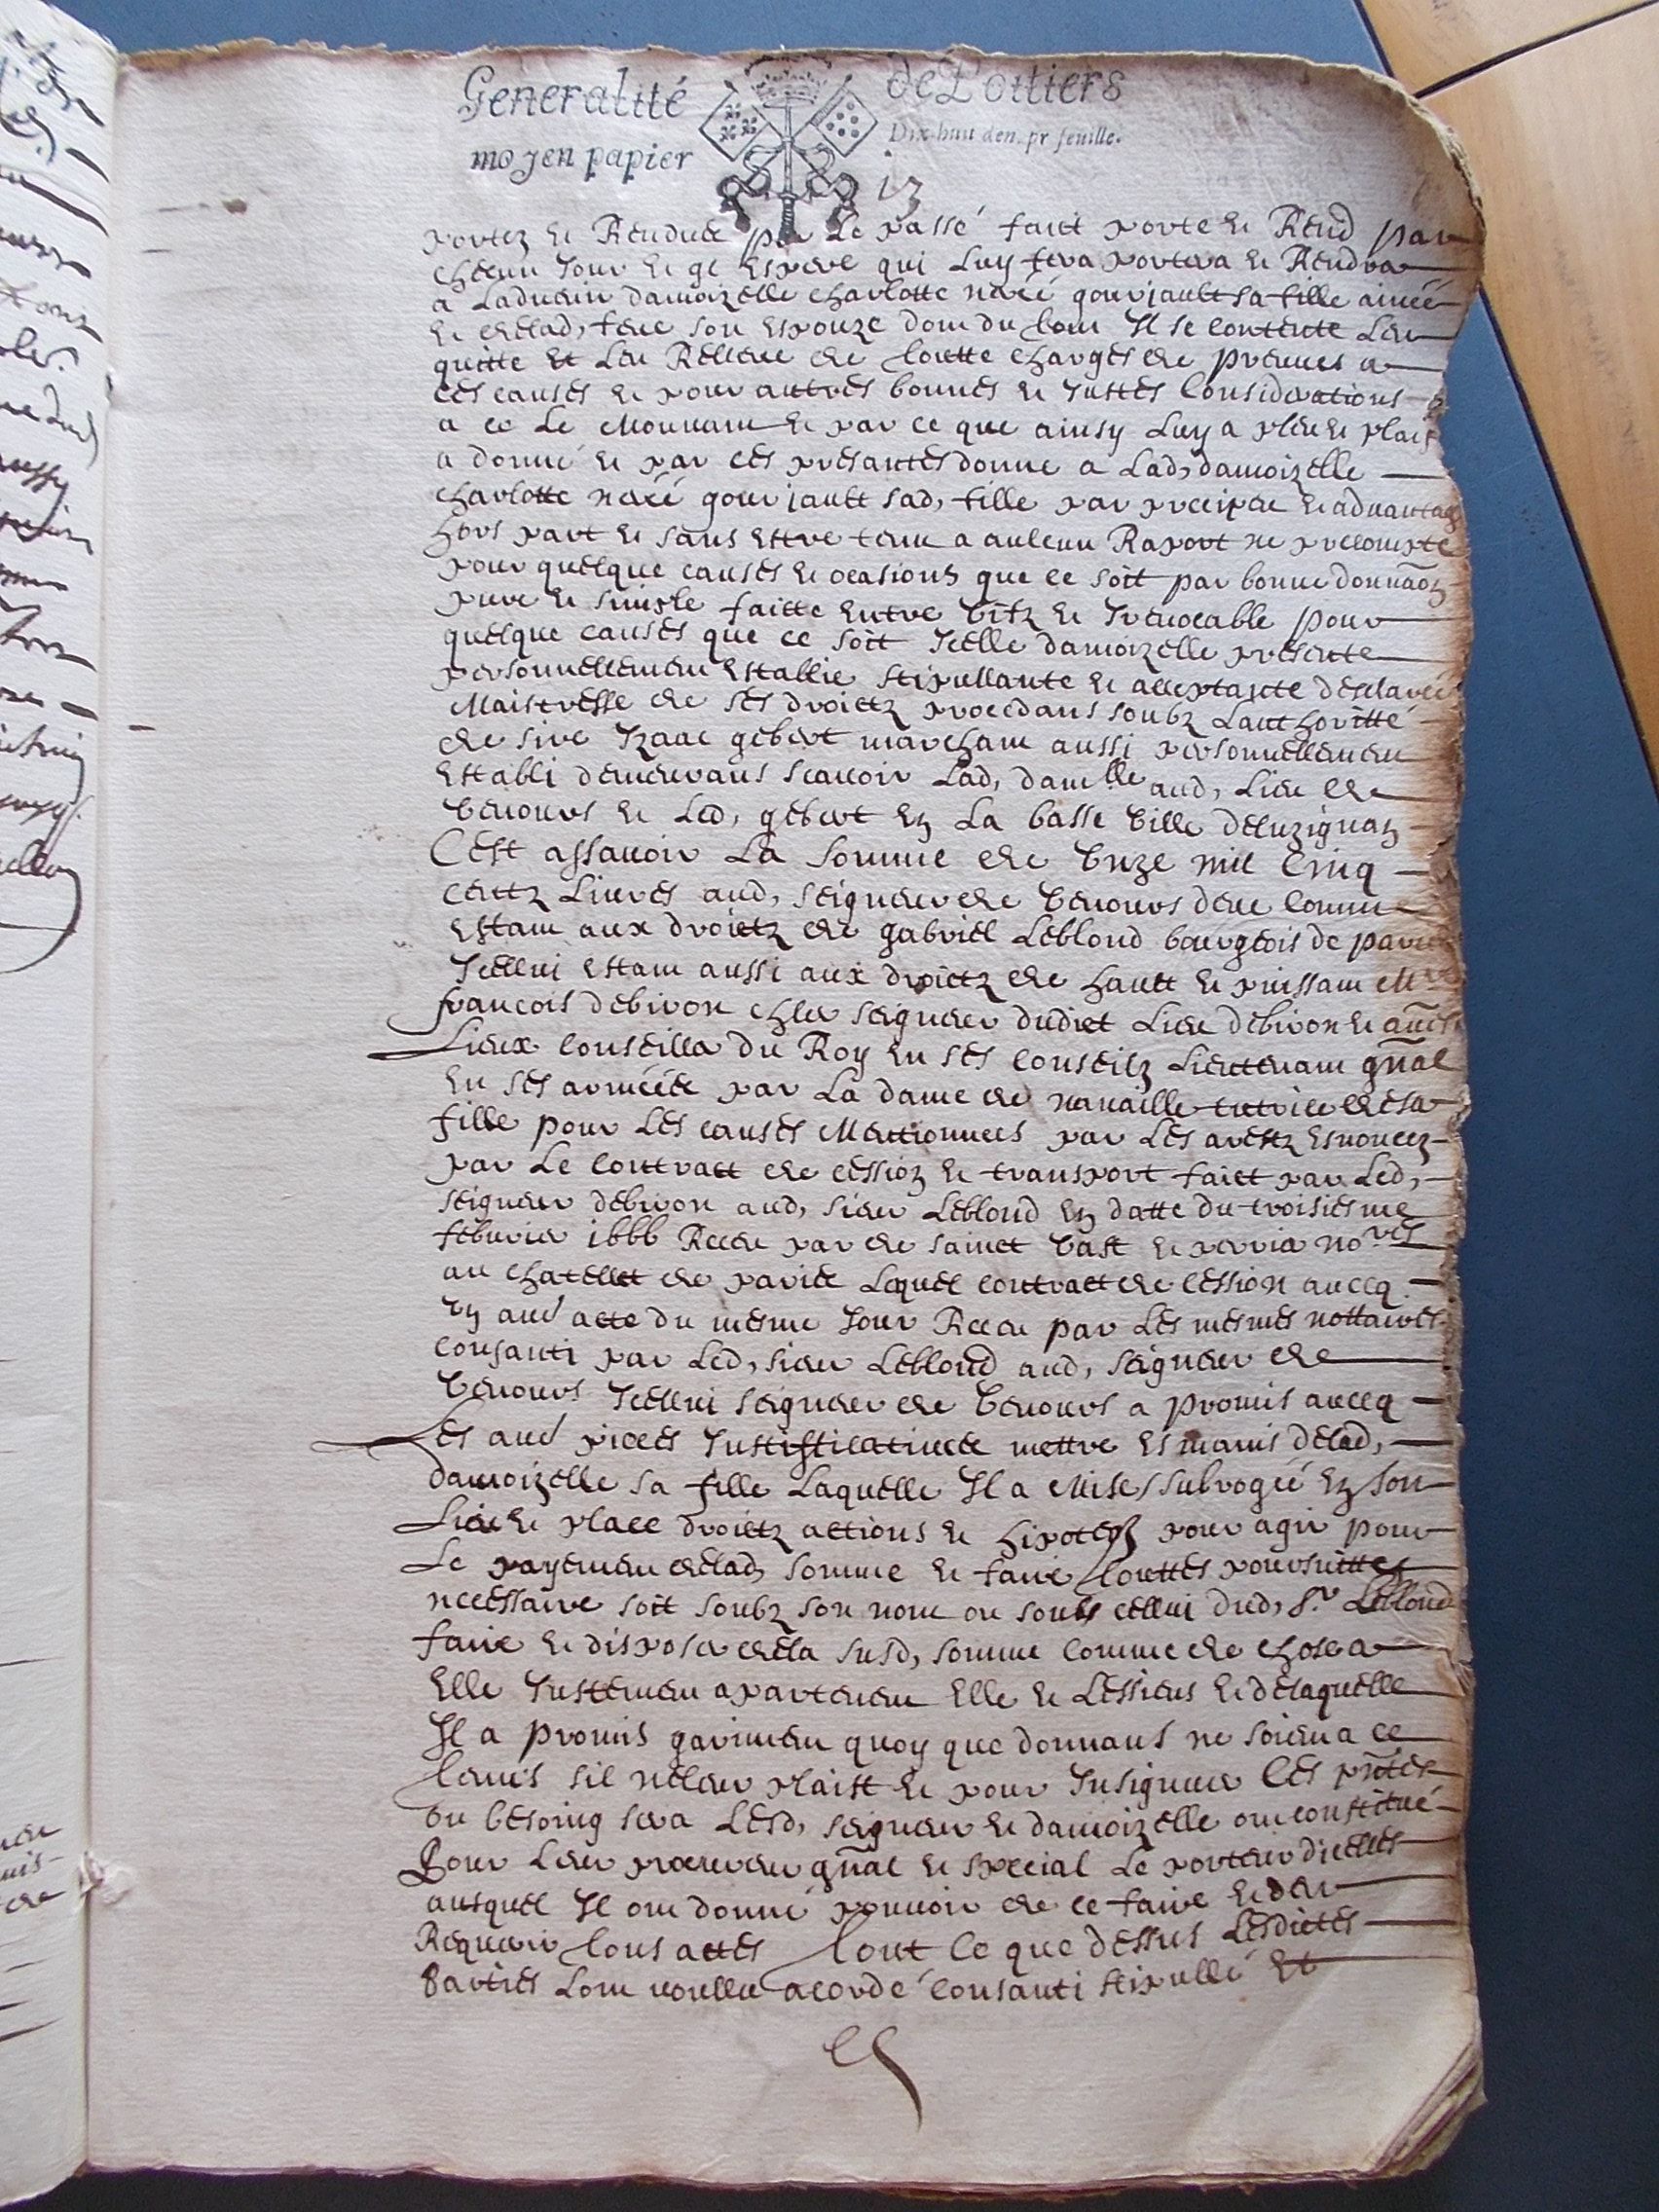 Generalité de Poitiers
moyen papier Dix-huit den. pr feuille.
13
portez et Renduee par le passé faict porte et Rend par
chacun Jour et qi Espere qui luy fera portera et Rendra
a Ladvenir damoizelle charlotte gourjault sa fille ainée
et de lad, feue son Espouze dont du tout Il se contente Len
quitte et Len Relleve de toutte charges de preuves a
ces causes et pour autres bonnes et Justes Considerations
a ce Le Mouvant et par ce que ainsy Luy a pleu et plaist
a donné et par ces presantes donne a Lad, damoizelle
charlotte gourjault sad, fille par precipeu et advantage
hors part et sans Estre tenu a aulcun Raport ne precompte
pour quelque causes et ocasions que ce soit par bonne donnaon
pure et simple faitte Entre Vifz et Irevocable pour
quelque causes que ce soit Icelle damoizelle presente
personnellement Establie stipullante et acceptante desclarée
Maistresse de ses droictz procedans soubz Lauthoritté
de sire Izaac gebert marchant aussi personnellement
Establi demeurans scavoir Lad, damlle aud, Lieu de
Venours et Led, gebert En La basse Ville deluzignan
Cest assavoir La somme de Unze mil Cinq
centz Livres aud, seigneur de Venours deue Comme
Estant aux droictz de gabriel Leblond bourgeois de paris
Icellui Estant aussi aux droictz de hault et puissant Mre
francois debiron chler seigneur dudict Lieu debiron et autres
Lieux Conseiller du Roy En ses Conseilz Lieutenant gnal
En ses armées par La dame de navaille tutrice de sa
fille pour Les causes Mentionnees par Les arestz Esnoncez
par Le Contratt de cession et transport faict par Led,
seigneur debiron aud, sieur Leblond En datte du troisiesme
febvrier 1666 Receu par de sainct Vast et perrier nores
au chatellet de paris Lequel contract de cession avecq
Un aud acte du mesme Jour Receu par Les mesmes nottaires
consanti par Led, sieur Leblond aud, seigneur de
Venours Icellui seigneur de Venours a promis avecq
Les aud pieces Justifficatives mettre Es mains delad,
damoizelle sa fille Laquelle Il a Mise, subrogée En son
Lieu et place droictz actions et hipoteqs pour agir pour
Le payement delad, somme et faire touttes poursuittes
necessaire soit soubz son nom ou soubz cellui dud, sr Leblond
faire et disposer dela susd, somme comme de chose a
Elle Justement apartenent Elle et Lessiens et delaquelle
Il a promis guariment quoy que donnans ne soient a ce
tenus sil neleur plaist et pour Insignuer Ces pntes
ou besoing sera Lesd, seigneur et damoizelle ont constitué
Pour Leur procureur gnal et special Le porteur dicelles
ausquel Il ont donné pouvoir de ce faire et den
Requerir tous actes tout ce que dessus Lesdictes
Parties Lont voullu acordé consanti stipullé Et